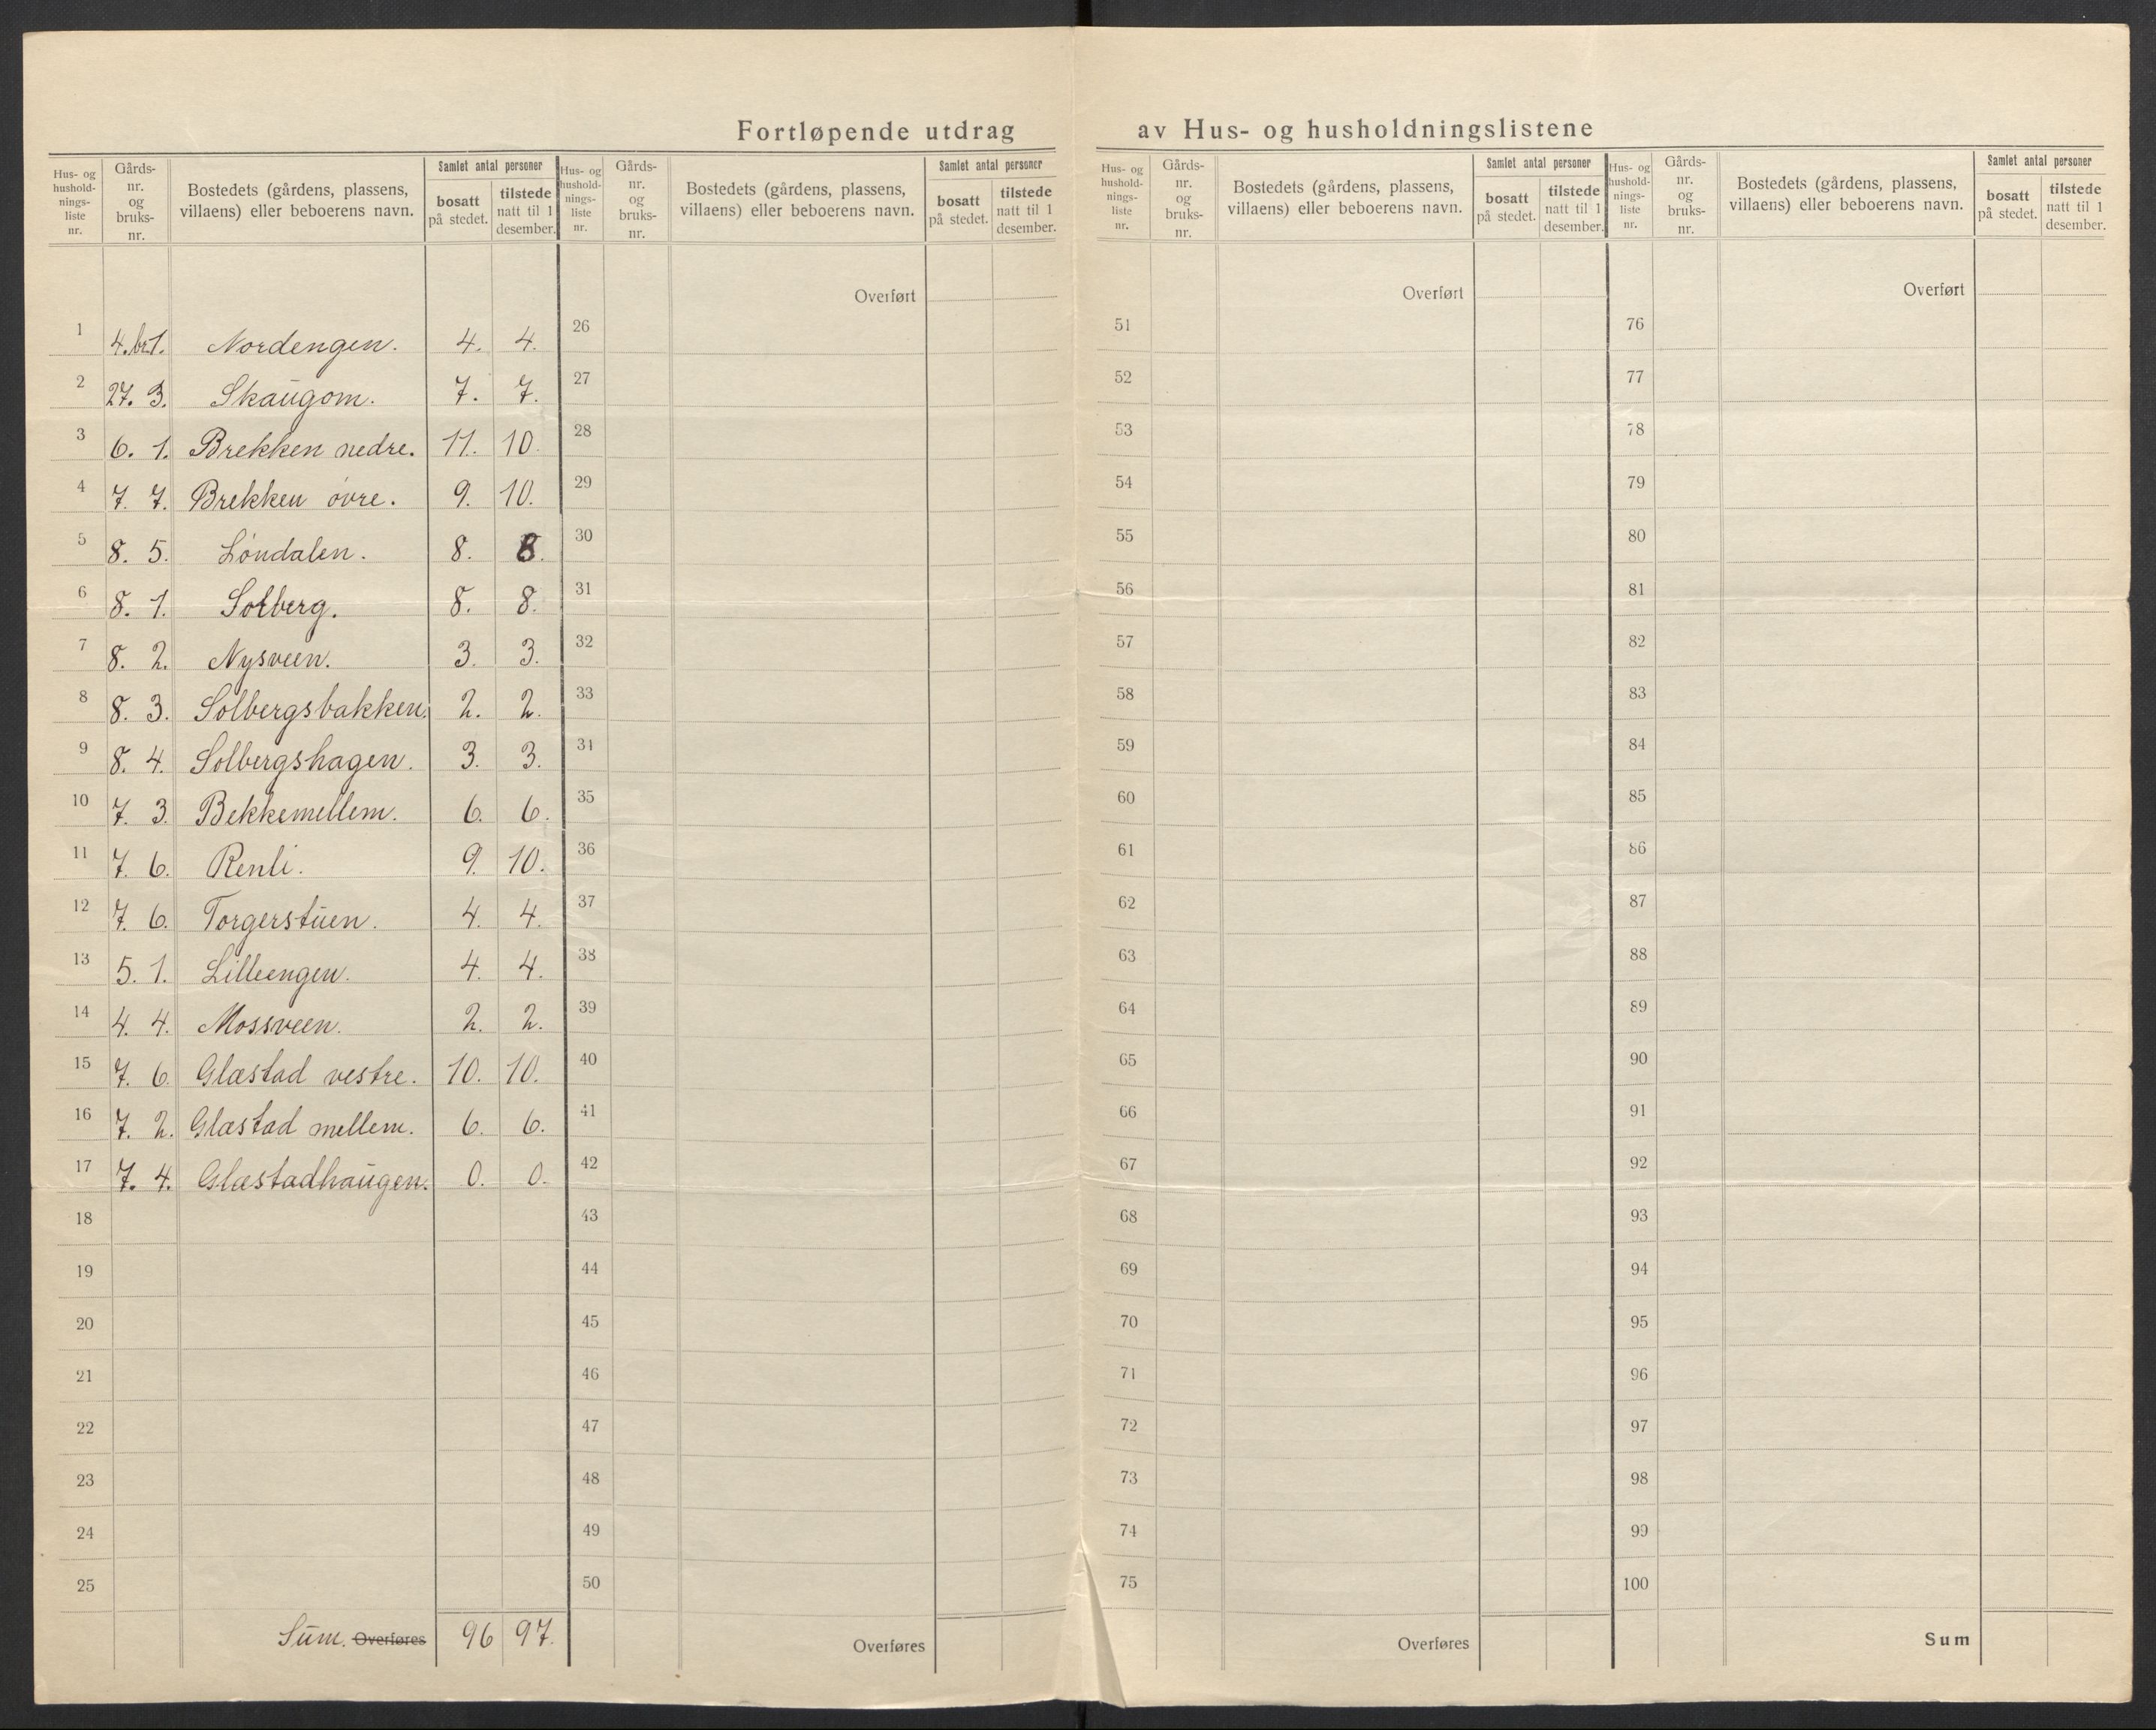 Fortløpende utdrag av Hus- og husholdningslistene
Hus- og hushold- nings- liste nr. | Gårds- nr. og bruks- nr. | Bostedets (gårdens, plassens, villaens) eller beboerens navn. | Samlet antal personer | bosatt på stedet. | tilstede natt til 1 desember.
1 4. br. 1. Nordengen. 4. 4.
2 27. 3. Skaugom. 7. 7.
3 6. 1. Brekken nedre. 11. 10.
4 7. 7. Brekken øvre. 9. 10.
5 8. 5. Løndalen. 8. 8.
6 8. 1. Solberg. 8. 8.
7 8. 2. Nysveen. 3. 3.
8 8. 3. Solbergsbakken. 2. 2.
9 8. 4. Solbergshagen. 3. 3.
10 7. 3. Bekkemellem. 6. 6.
11 7. 6. Renli. 9. 10.
12 7. 6. Torgerstuen. 4. 4.
13 5. 1. Lilleengen. 4. 4.
14 4. 4. Mossveen. 2. 2.
15 7. 6. Glæstad vestre. 10. 10.
16 7. 2. Glæstad mellem. 6. 6.
17 7. 4. Glæstadhaugen. 0. 0.
18
19
20
21
22
23
24
25
Sum. Overføres 96 97.
Hus- og hushold- nings- liste nr. | Gårds- nr. og bruks- nr. | Bostedets (gårdens, plassens, villaens) eller beboerens navn. | Samlet antal personer | bosatt på stedet. | tilstede natt til 1 desember.
Overført
26
27
28
29
30
31
32
33
34
35
36
37
38
39
40
41
42
43
44
45
46
47
48
49
50
Overføres
Hus- og hushold- nings- liste nr. | Gårds- nr. og bruks- nr. | Bostedets (gårdens, plassens, villaens) eller beboerens navn. | Samlet antal personer | bosatt på stedet. | tilstede natt til 1 desember.
Overført
51
52
53
54
55
56
57
58
59
60
61
62
63
64
65
66
67
68
69
70
71
72
73
74
75
Overføres
Hus- og hushold- nings- liste nr. | Gårds- nr. og bruks- nr. | Bostedets (gårdens, plassens, villaens) eller beboerens navn. | Samlet antal personer | bosatt på stedet. | tilstede natt til 1 desember.
Overført
76
77
78
79
80
81
82
83
84
85
86
87
88
89
90
91
92
93
94
95
96
97
98
99
100
Sum